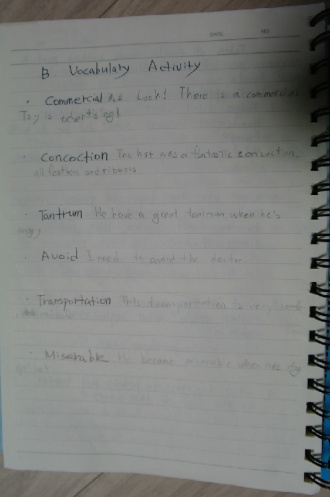 DATE NO
B. Vocabulary Activity
· Commercial Look! There is a commercial
Toy is
· Concoction The hat was a fantastic concoction,
of feathers and ribbons
· Tantrum He have a great tantrum when he's
angry
· Avoid I need to avoid the
· Transportation This transportation is very
· Miserable He became miserable when